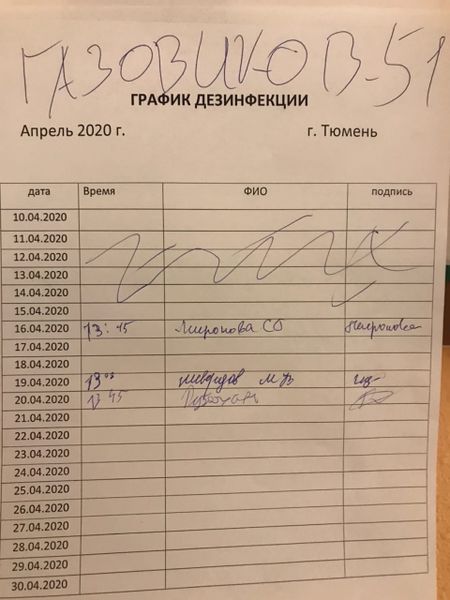 ГАЗОВИКОВ-51
ГРАФИК ДЕЗИНФЕКЦИИ
Апрель 2020 г. г. Тюмень
дата Время ФИО подпись
10.04.2020
11.04.2020
12.04.2020
13.04.2020
14.04.2020
15.04.2020
16.04.2020 13:45 Миронова СО
17.04.2020
18.04.2020
19.04.2020 13
20.04.2020 13 45
21.04.2020
22.04.2020
23.04.2020
24.04.2020
25.04.2020
26.04.2020
27.04.2020
28.04.2020
29.04.2020
30.04.2020